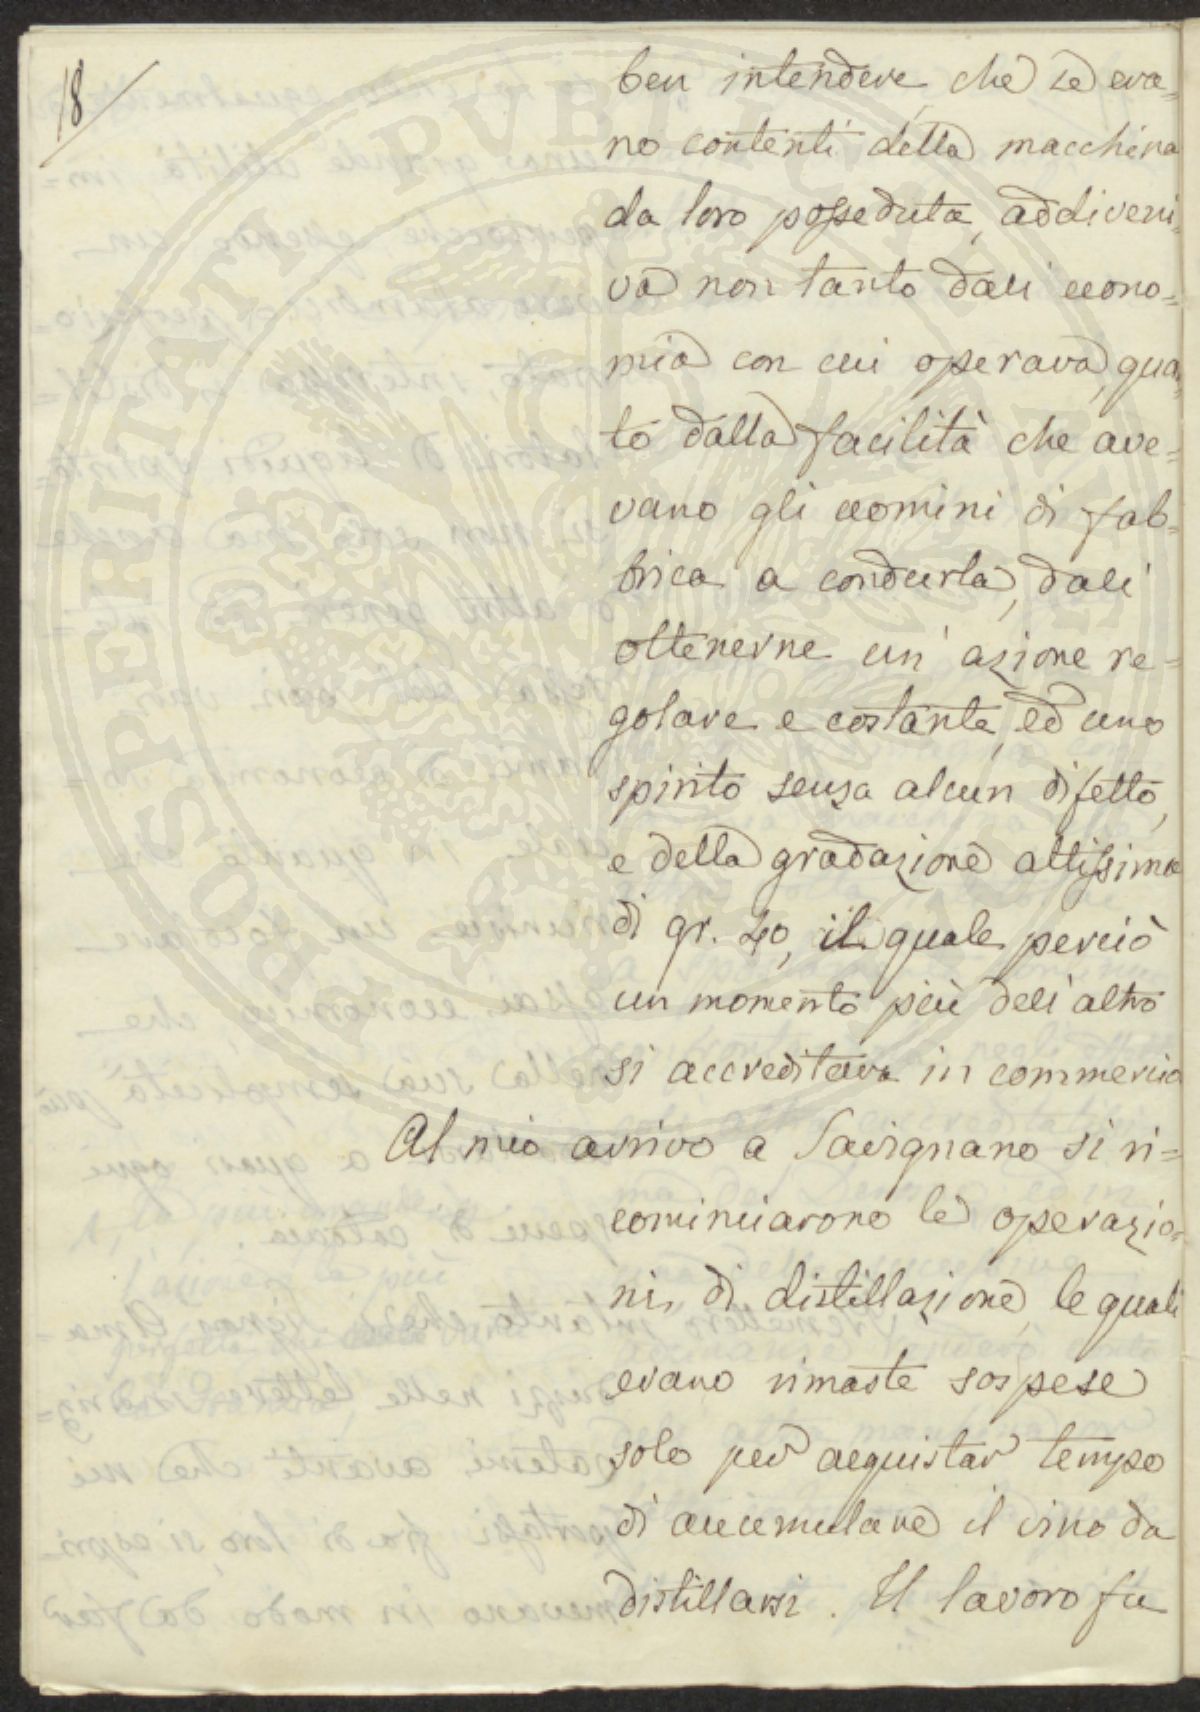 18
ben intendere, che se era=
no contenti della macchina
da loro posseduta, addiveni=
va non tanto dall' econo=
mia con cui operava, quan=
to dalla facilità che ave=
vano gli uomini di fab=
brica a condurla, dall'
ottenerne un' azione re=
golare e costante, ed uno
spirito senza alcun difetto,
e della gradazione altissima
di gr. 40, il quale perciò
un momento più dell' altro
si accreditava in commercio
Al mio arrivo a Savignano si ri=
cominciarono le operazio=
ni di distillazione, le quali
erano rimaste sospese
solo per acquistar tempo
di accumulare il vino da
distillarsi. Il lavoro fu
PROSPERITATI PVBLICAE